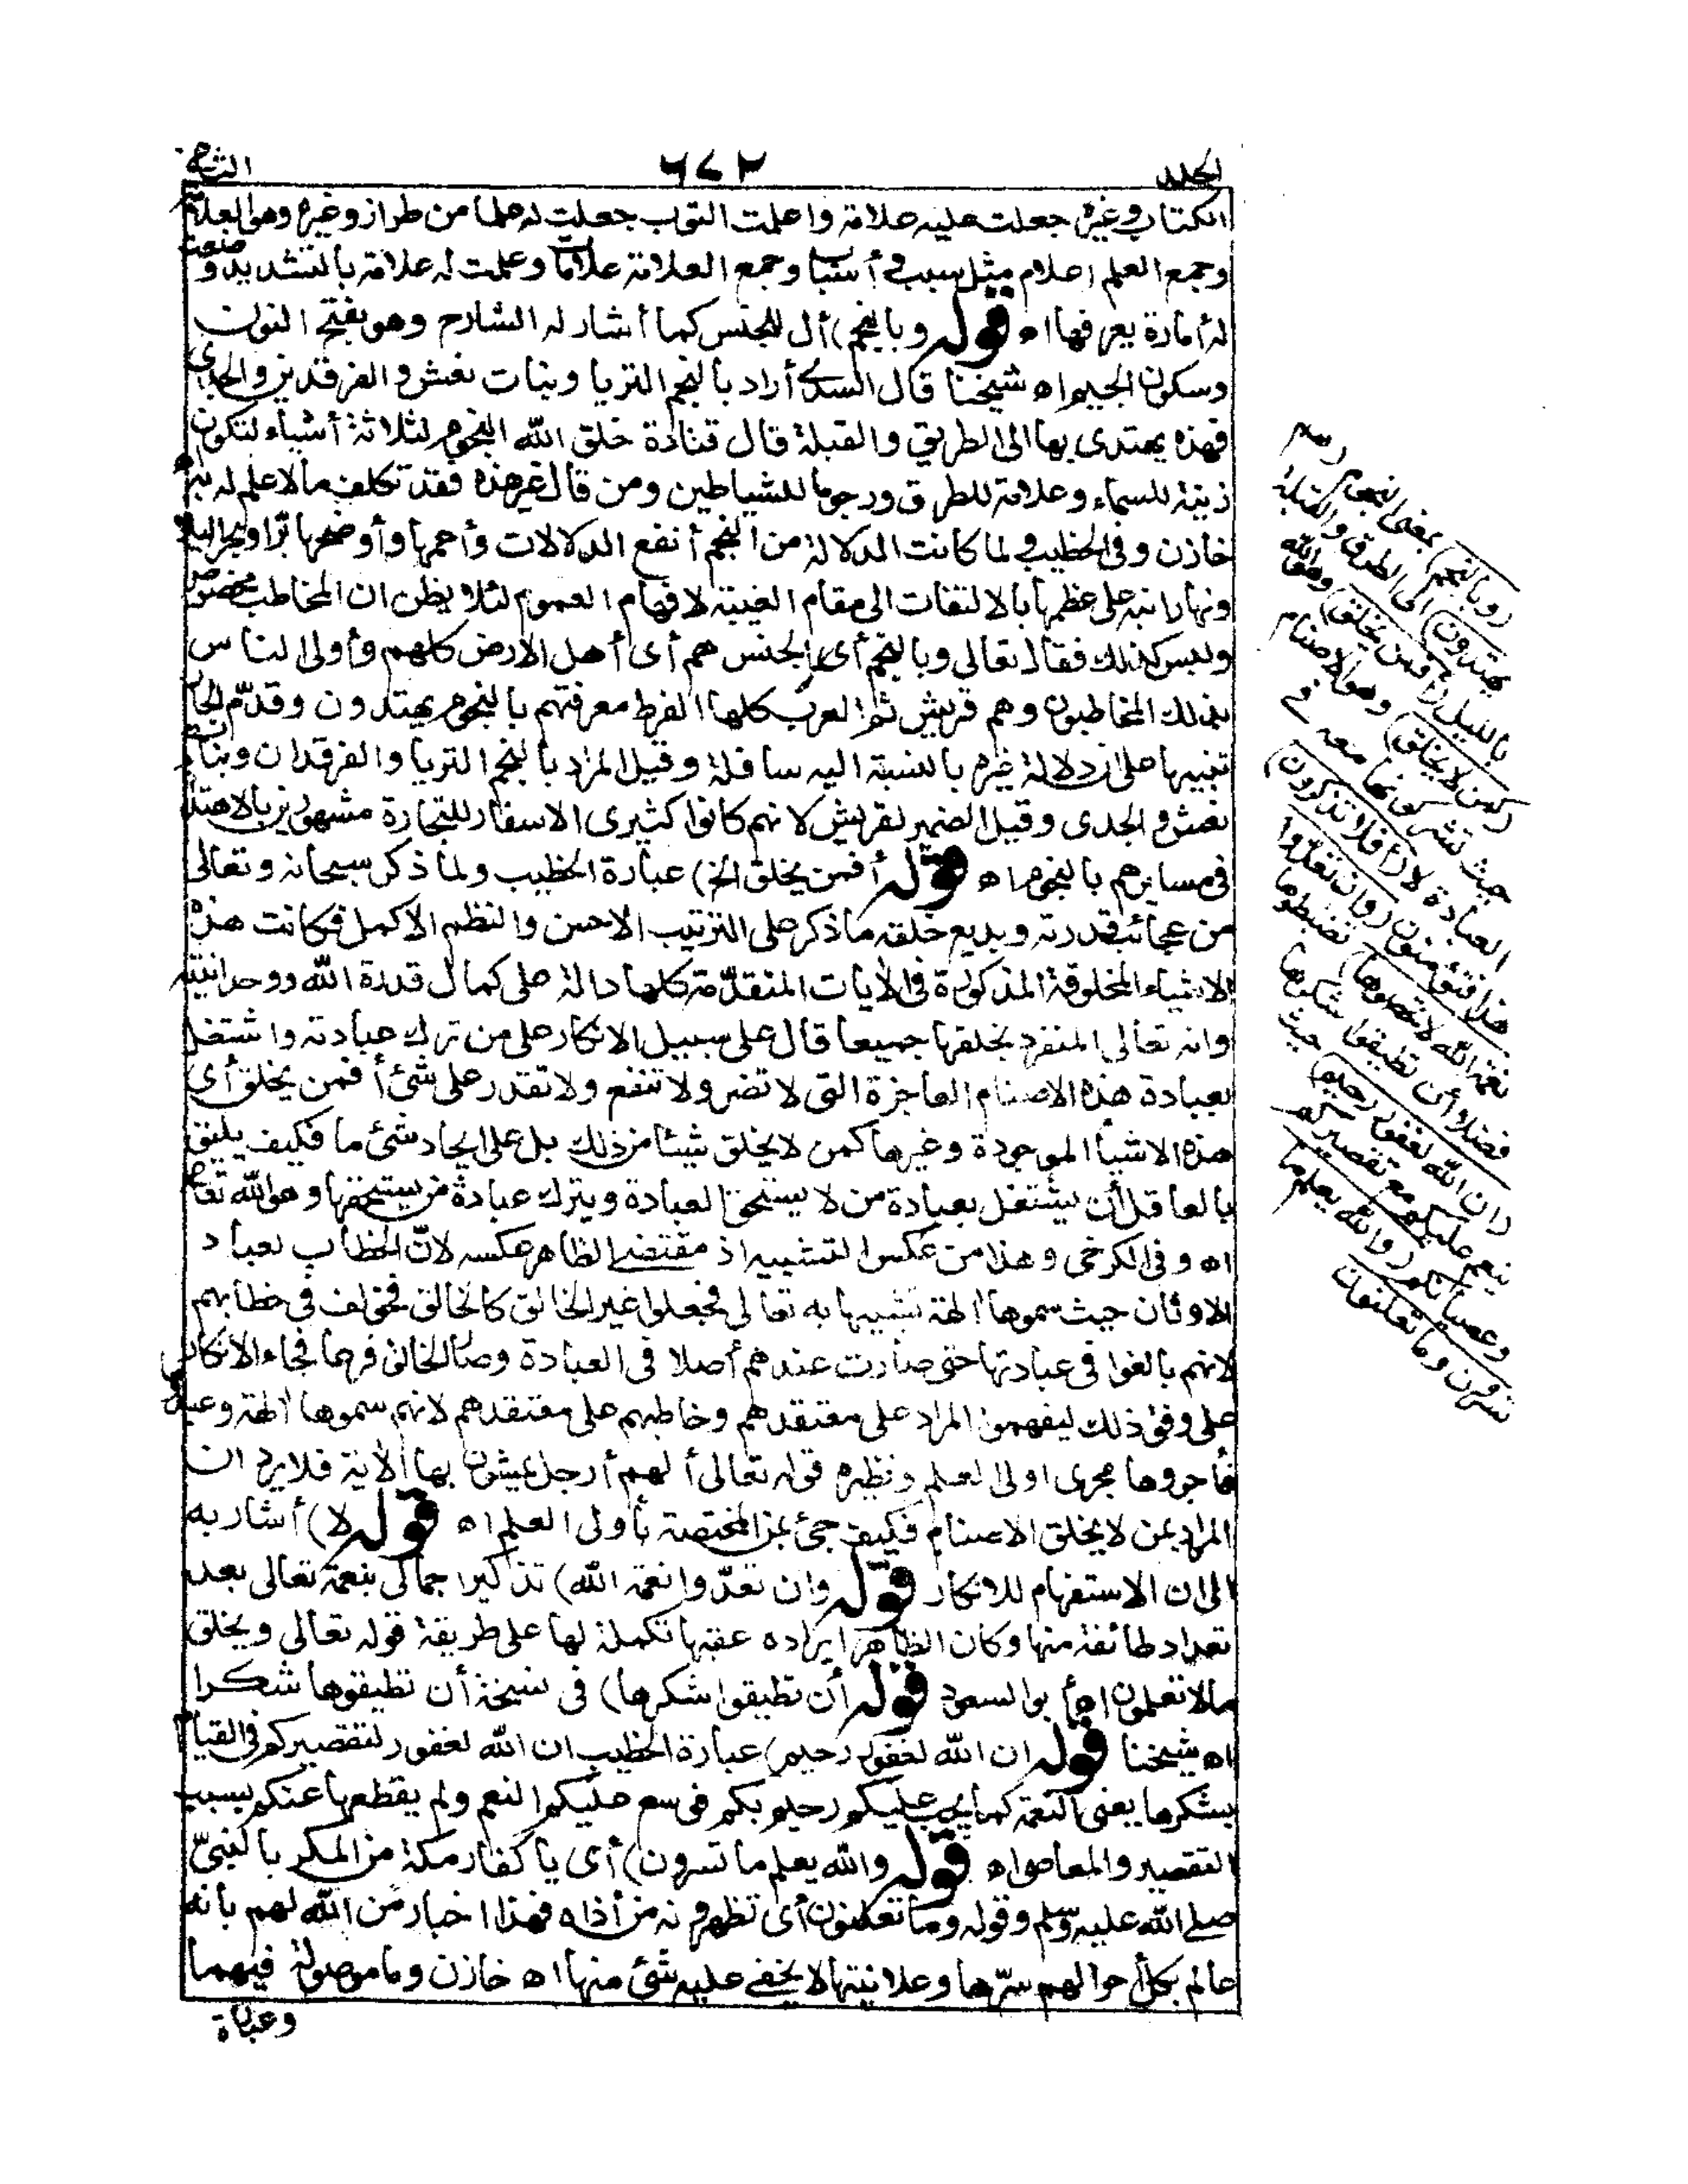 الجلد
٦٧٢
الكتاب وغيره جعلت عليه علامة واعلمت الثوب جعلت له علما من طراز وغيره وهو العلامة
وجمع العلم اعلام مثل سبب وأسباب وجمع العلامة علامات وعلمت له علامة بالتشديد وضعت
له أمارة يعرفها اه قوله وبالنجم) أل للجنس كما أشار له الشارح وهو بفتح النون
وسكون الجيم اه شيخنا قال السدي أراد بالنجم الثريا وبنات نعش والفرقدين والجدي
فهذه يهتدى بها الى الطريق والقبلة قال قتادة خلق الله النجوم لثلاثة أشياء لتكون
زينة للسماء وعلامة للطرق ورجوما للشياطين ومن قال غير هذه فقد تكلف ما لا علم له به اه
خازن وفى الخطيب ولما كانت الدلالة من النجم أنفع الدلالات وأعمها وأوضحها برّا وبحرا ليلا
ونهارا نبه على عظمها بالالتفات الى مقام الغيبة لافهام العموم لئلا يظن ان المخاطب مخصوص
وليس كذلك فقال تعالى وبالنجم أى الجنس هم أى أهل الارض كلهم وأولى الناس
بذلك المخاطبون وهم قريش ثم العرب كلها لفرط معرفتهم بالنجوم يهتدون وقدّم الجار
تنبيها على ان دلالة غيره بالنسبة اليه سافلة وقيل المراد بالنجم الثريا والفرقدان وبنات
نعش والجدى وقيل الضمير لقريش لانهم كانوا كثيرى الاسفار للتجارة مشهورين بالاهتداء
فى مسايرهم بالنجوم اه قوله أفمن يخلق الخ) عبارة الخطيب ولما ذكر سبحانه وتعالى
من عجائب قدرته وبديع خلقه ما ذكر على الترتيب الاحسن والنظم الاكمل فكانت هذه
الاشياء المخلوقة المذكورة فى الآيات المتقدّمة كلها دالة على كمال قدرة الله ووحدانيته
وانه تعالى المنفرد بخلقها جميعا قال على سبيل الانكار على من ترك عبادته واشتغل
بعبادة هذه الاصنام العاجزة التى لا تضر ولا تنفع ولا تقدر على شئ أفمن يخلق أى
هذه الاشياء الموجودة وغيرها كمن لا يخلق شيئا من ذلك بل على ايجاد شئ ما فكيف يليق
بالعاقل أن يشتغل بعبادة من لا يستحق العبادة ويترك عبادة من يستحقها وهو الله تعالى
اه وفى الكرخى وهذا من عكس التشبيه اذ مقتضى الظاهر عكسه لانّ الخطاب لعباد
الاوثان حيث سموها آلهة تشبيها به تعالى فجعلوا غير الخالق كالخالق فخولف فى خطابهم
لانهم بالغوا فى عبادتها حتى صارت عندهم أصلا فى العبادة وصار الخالق فرعا فجاء الانكار
على وفق ذلك ليفهموا المراد على معتقدهم وخاطبهم على معتقدهم لانهم سموها آلهة وعبدوها
فأجروها مجرى اولى العلم ونظيره قوله تعالى ألهم أرجل يمشون بها الآية فلا يرد ان
المراد بمن لا يخلق الاصنام فكيف جئ بمن المختصة بأولى العلم اه قوله لا) أشار به
الى ان الاستفهام للانكار قوله وان تعدّوا نعمة الله) تذكير اجمالى بنعمه تعالى بعد
تعداد طائفة منها وكان الظاهر ايراده عقبها تكملة لها على طريقة قوله تعالى ويخلق
مالا تعلمون اه أبو السعود قوله أن تطيقوا شكرها) فى نسخة أن تطيقوها شكرا
اه شيخنا قوله ان الله لغفور رحيم) عبارة الخطيب ان الله لغفور لتقصيركم فى القيام
بشكرها يعنى النعمة كما يجب عليكم رحيم بكم فوسع عليكم النعم ولم يقطعها عنكم بسبب
التقصير والمعاصى اه قوله والله يعلم ما تسرون) أى يا كفار مكة من المكر بالنبىّ
صلى الله عليه وسلم وقوله وما تعلنون أى تظهرونه من أذاه فهذا اخبار من الله لهم بأنه
عالم بكل أحوالهم سرّها وعلانيتها لا يخفى عليه شئ منها اه خازن وما موصولة فيهما
وعبارة
(وبالنجم) بمعنى النجوم (هم
يهتدون) الى الطرق والقبلة
بالليل (أفمن يخلق) وهو الله
(كمن لا يخلق) وهو الاصنام
حيث تشركونها معه فى
العبادة لا (أفلا تذكرون)
هذا فتؤمنون (وان تعدّوا
نعمة الله لا تحصوها) تضبطوها
فضلا أن تطيقوا شكرها
(ان الله لغفور رحيم) حيث
ينعم عليكم مع تقصيركم
وعصيانكم (والله يعلم ما
تسرون وما تعلنون